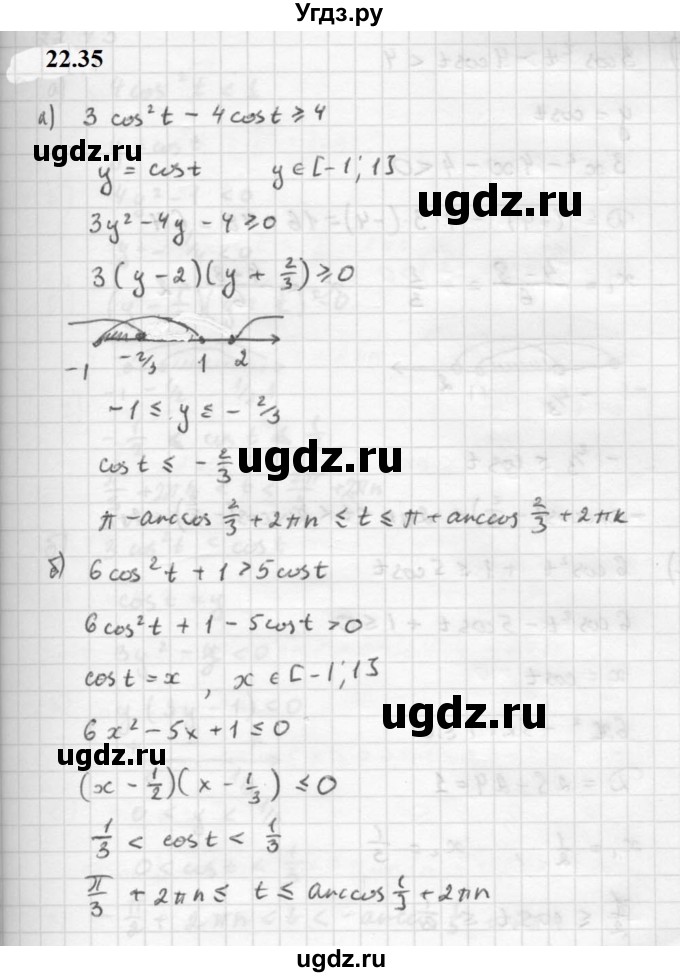 Угдз.ру
22.35
а) 3 cos²t - 4cost ≥ 4
ugdz.ru
y = cost y ∈ [-1; 1]
ugdz.ru
3y² - 4y - 4 ≥ 0
3(y - 2)(y + 2/3) ≥ 0
-1 -2/3 1 2
-1 ≤ y ≤ - 2/3
cost ≤ - 2/3
ugdz.ru
π - arccos 2/3 + 2πn ≤ t ≤ π + arccos 2/3 + 2πk
б) 6cos²t + 1 > 5cost
ugdz.ru
6cos²t + 1 - 5cost > 0
cost = x , x ∈ [-1; 1]
ugdz.ru
6x² - 5x + 1 ≤ 0
ugdz.ru
(x - 1/2)(x - 1/3) ≤ 0
1/3 < cost < 1/3
π/3 + 2πn ≤ t ≤ arccos 1/3 + 2πn
ugdz.ru
ugdz.ru